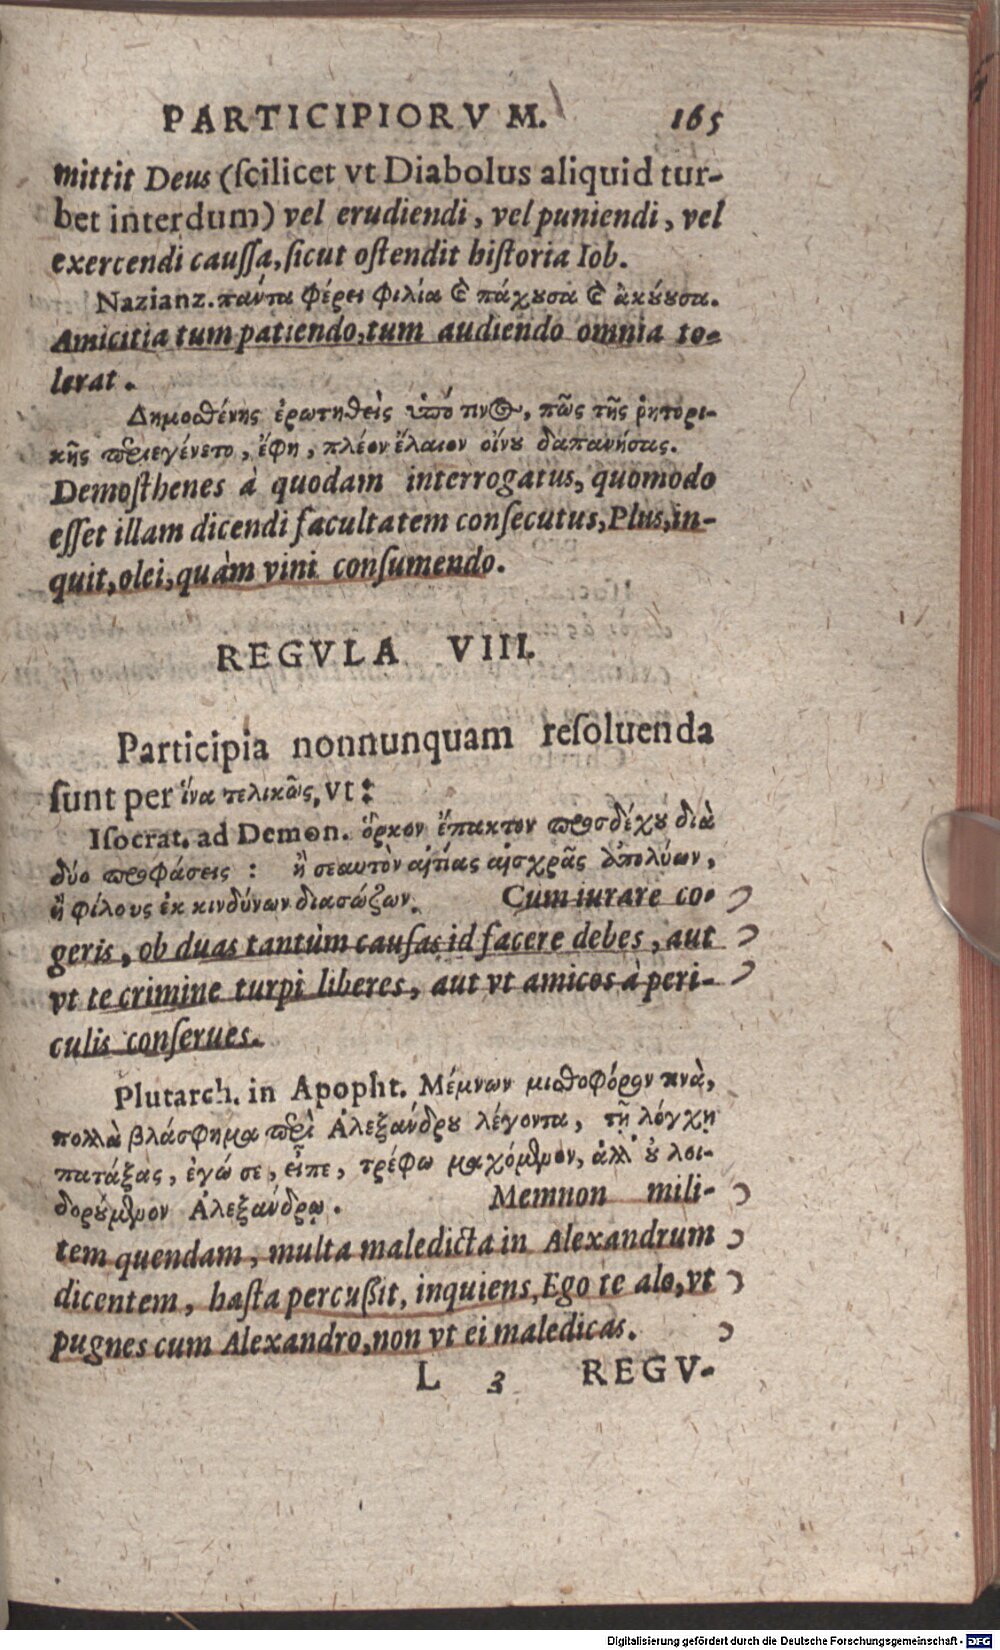 PARTICIPIORVM. 165
mittit Deus (ſcilicet vt Diabolus aliquid tur-
bet interdum) vel erudiendi, vel puniendi, vel
exercendi cauſſa, ſicut oſtendit hiſtoria Iob.
Nazianz. πάντα φέρει φιλία καὶ πάχουσα καὶ ἀκούουσα.
Amicitia tum patiendo, tum audiendo omnia to-
lerat.
Δημοσθένης ἐρωτηθεὶς ὑπό τινος, πῶς τῆς ῥητορι-
κῆς περιεγένετο, ἔφη, πλέον ἔλαιον οἴνου δαπανήσας.
Demoſthenes à quodam interrogatus, quomodo
eſſet illam dicendi facultatem conſecutus, Plus, in-
quit, olei, quàm vini conſumendo.
REGVLA VIII.
Participia nonnunquam reſoluenda
ſunt per ἵνα τελικῶς, vt:
Iſocrat. ad Demon. ὅρκον ἔπακτον προσδέχου διὰ
δύο προφάσεις : ἢ σεαυτὸν αἰτίας αἰσχρᾶς ἀπολύων,
ἢ φίλους ἐκ κινδύνων διασώζων. Cum iurare co-
geris, ob duas tantùm cauſas id facere debes, aut
vt te crimine turpi liberes, aut vt amicos à peri-
culis conſerues.
Plutarch. in Apopht. Μέμνων μισθοφόρον τινὰ,
πολλὰ βλάσφημα περὶ Ἀλεξάνδρου λέγοντα, τῇ λόγχῃ
πατάξας, ἐγώ σε, εἶπε, τρέφω μαχόμενον, ἀλλ' οὐ λοι-
δορούμενον Ἀλεξάνδρῳ. Memnon mili-
tem quendam, multa maledicta in Alexandrum
dicentem, haſta percußit, inquiens, Ego te alo, vt
pugnes cum Alexandro, non vt ei maledicas.
L 3 REGV-
Digitalisierung gefördert durch die Deutsche Forschungsgemeinschaft - DFG